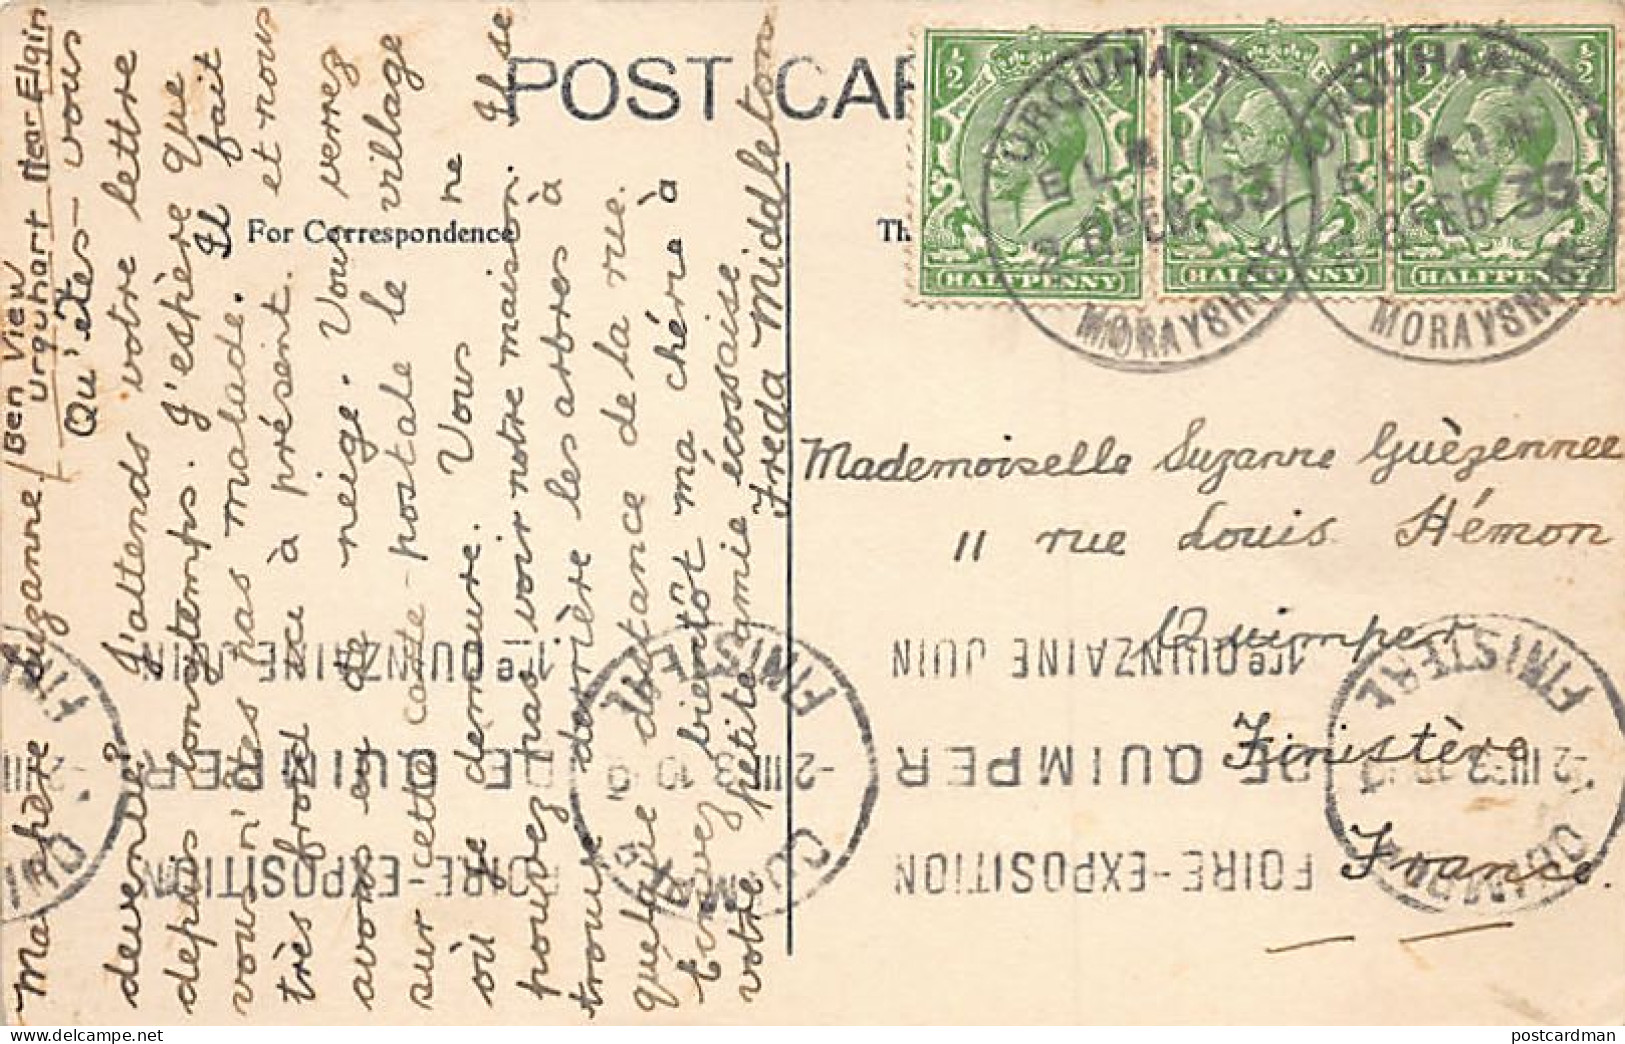 POST CAR
For Correspondence
Th
Ben View
Urquhart
Near Elgin
Ma chère Suzanne,
Qu'êtes-vous
devenue? J'attends votre lettre
depuis longtemps. J'espère que
vous n'êtes pas malade. Il fait
très froid ici à présent. et nous
avons eu de neige. Vous verrez
sur cette carte-postale le village
où je demeure. Vous ne
pouvez pas voir notre maison. Il se
trouve derrière les arbres à
quelque distance de la rue.
Ecrivez bientôt ma chère à
votre petite amie écossaise
Freda Middleton
HALFPENNY
HALFPENNY
HALFPENNY
URQUHART
ELGIN
28 FEB. 33
MORAYSHIRE
URQUHART
ELGIN
28 FEB. 33
MORAYSHIRE
Mademoiselle Suzanne Guèzennec
11 rue Louis Hémon
Quimper
Finistère
France.
FOIRE-EXPOSITION
DE QUIMPER
1re QUINZAINE JUIN
QUIMPER
FINISTERE
FOIRE-EXPOSITION
DE QUIMPER
1re QUINZAINE JUIN
QUIMPER
FINISTERE
postcardman